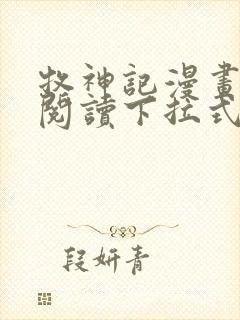 牧神記漫畫
閱讀下拉式
段妍青